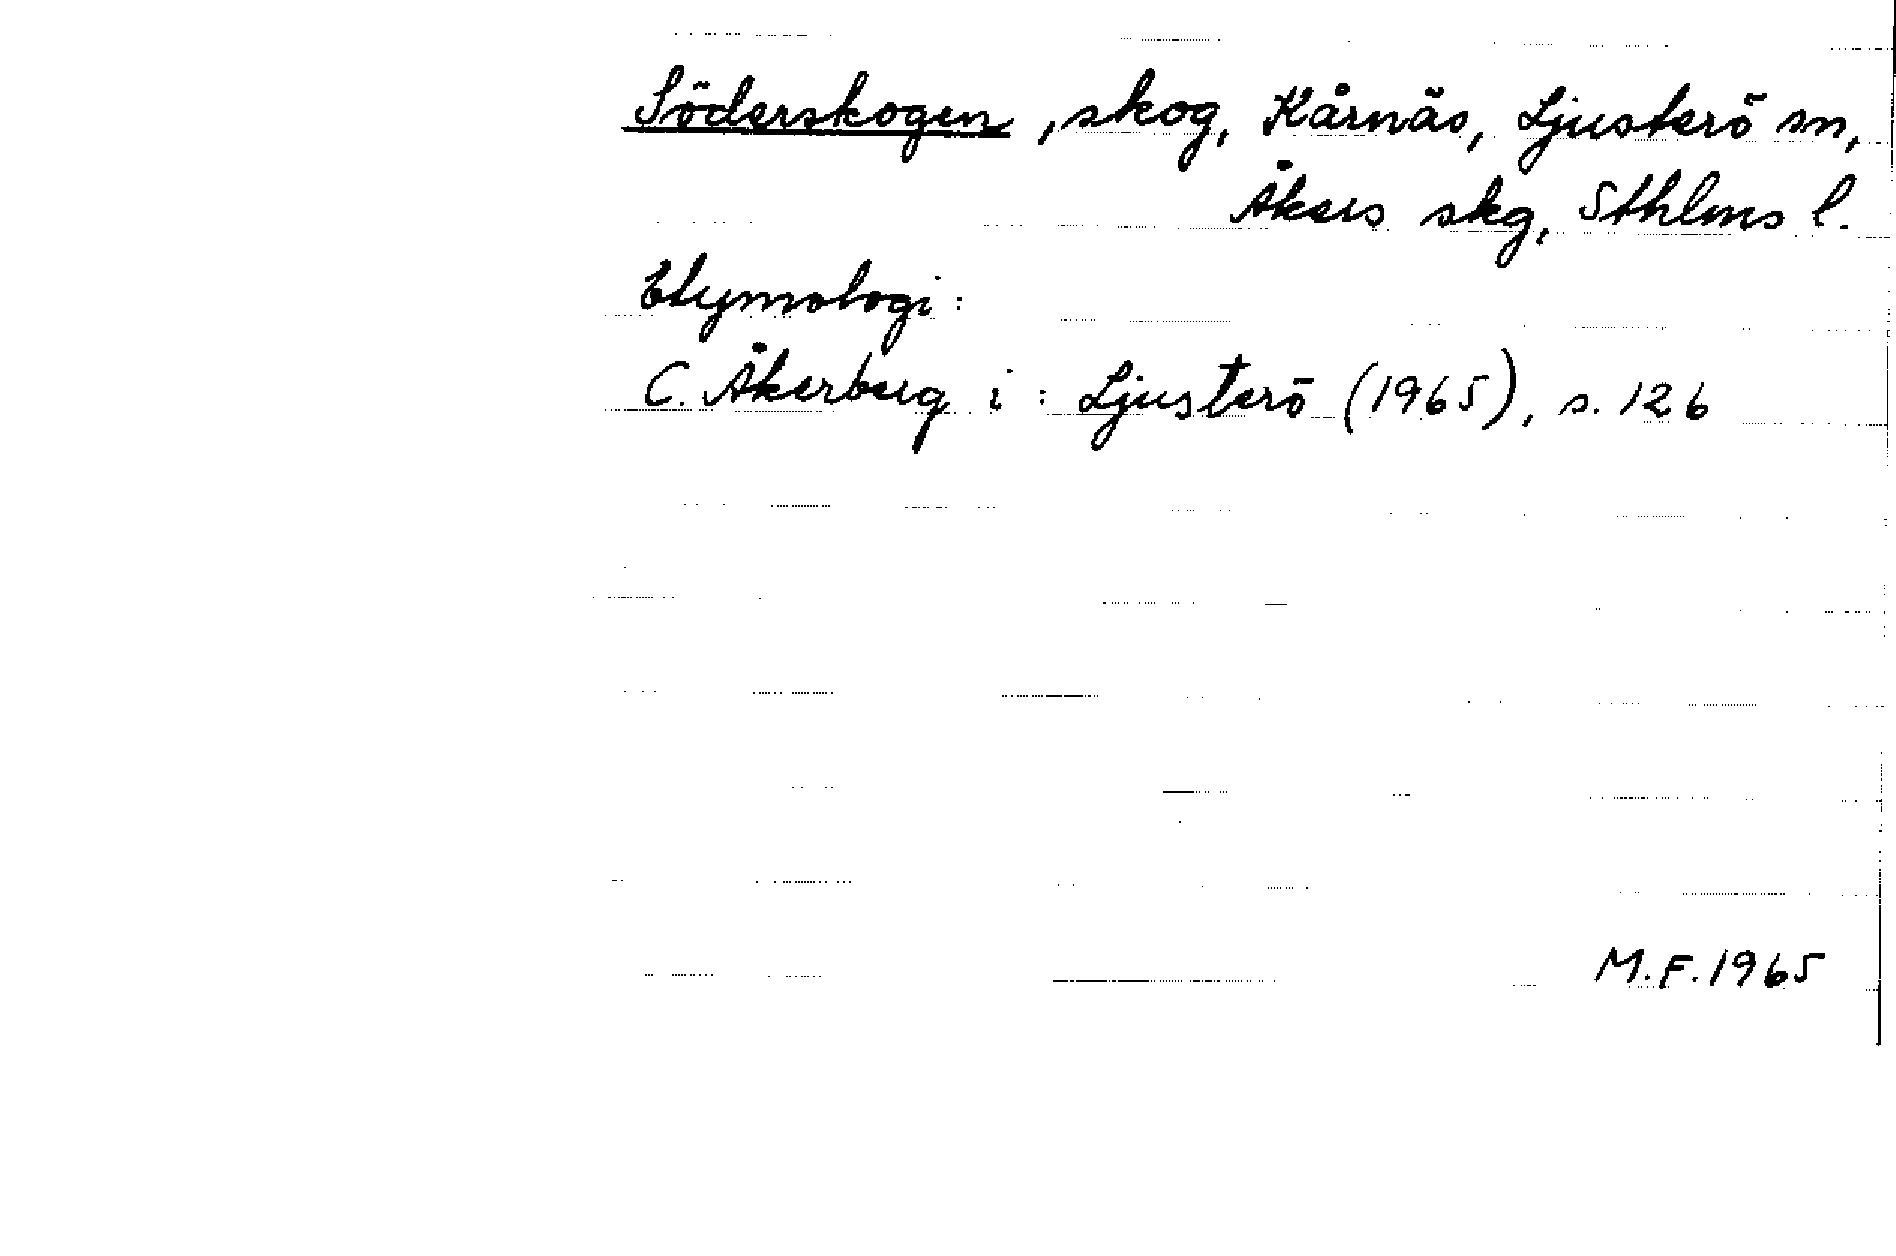 Söderskogen, skog, Kårnäs, Ljusterö sn,
Åkers skg, Sthlms l.
Etymologi:
C. Åkerberg i: Ljusterö (1965), s. 126
M.F. 1965